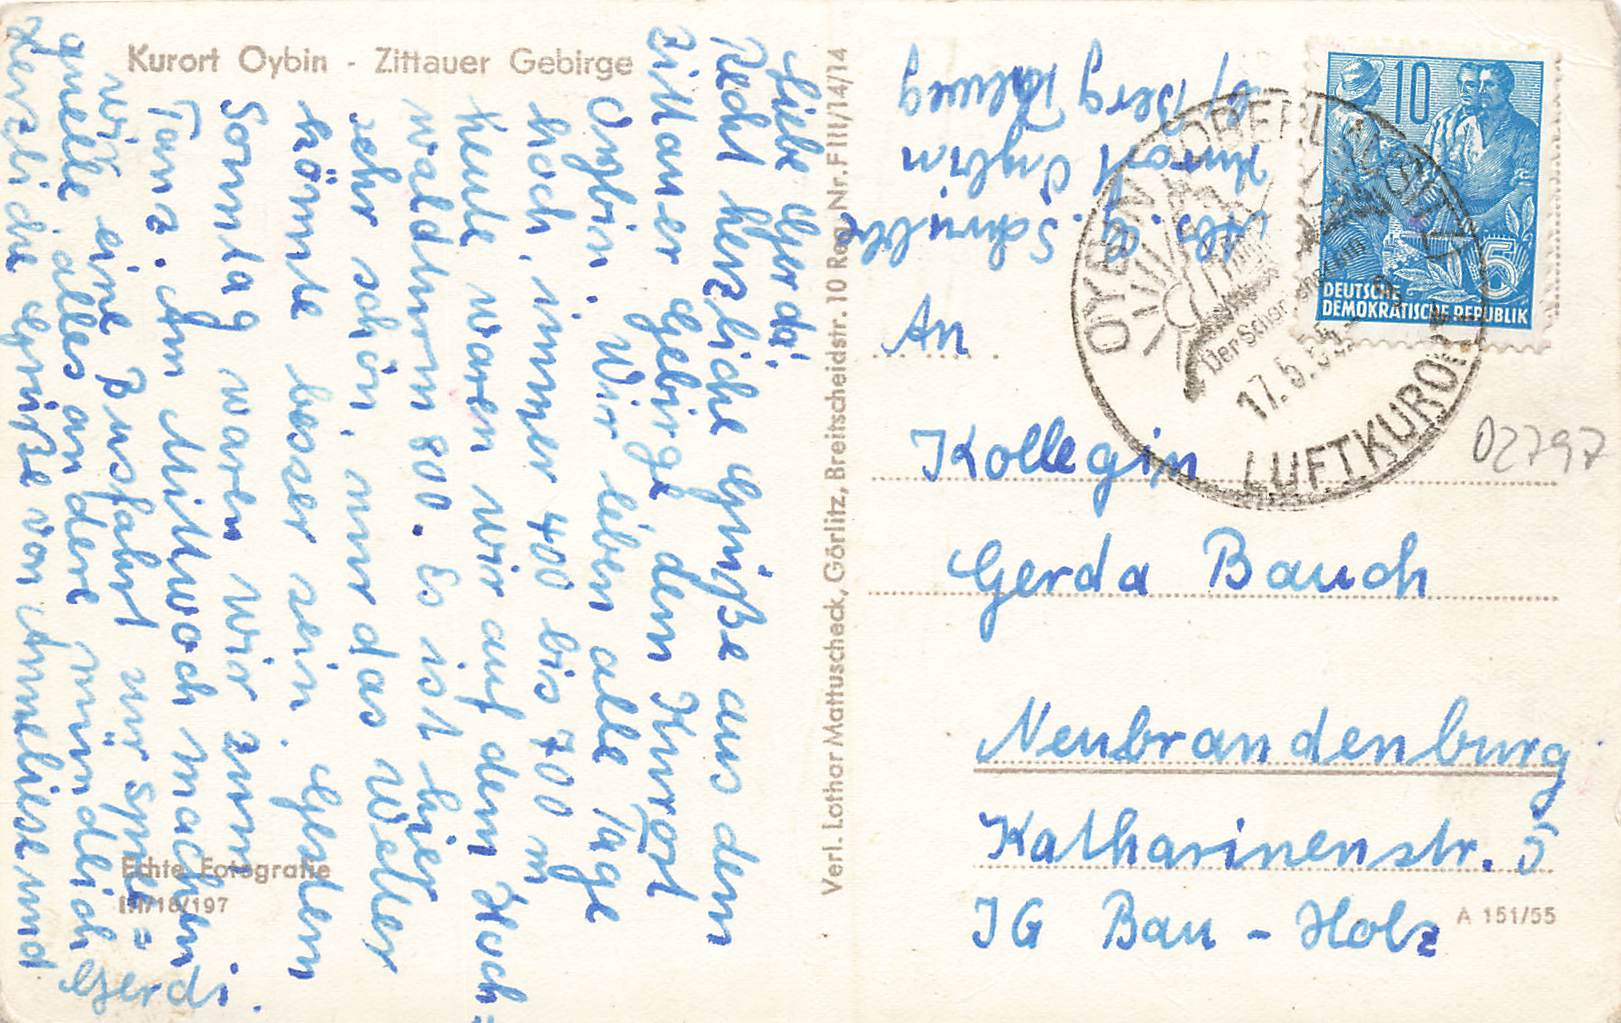 Kurort Oybin - Zittauer Gebirge
Liebe Gerda!
Recht herzliche Grüße aus dem
Zittauer Gebirge dem Kurort
Oybin. Wir leben alle Tage
hoch, immer 400 bis 700 m
heute waren wir auf dem Hoch=
waldturm 800. Es ist hier
sehr schön, nur das Wetter
könnte besser sein. Gestern
Sonntag waren wir zum
Tanz. Am Mittwoch machen
wir eine Busfahrt zur Spree=
quelle alles andere mündlich
Herzliche Grüße von Anneliese und
Gerdi.
Echte Fotografie
III/18/197
Verl. Lothar Mattuscheck, Görlitz, Breitscheidstr. 10 Reg. Nr. F III/14/14
Abs. G. Schmidt
Kurort Oybin
10
5
DEUTSCHE
DEMOKRATISCHE REPUBLIK
OYBIN OBERLAUSITZ
LUFTKURORT
17.5.
An
Kollegin
Gerda Bauch
02797
Neubrandenburg
Katharinenstr. 5
IG Bau - Holz
A 151/55